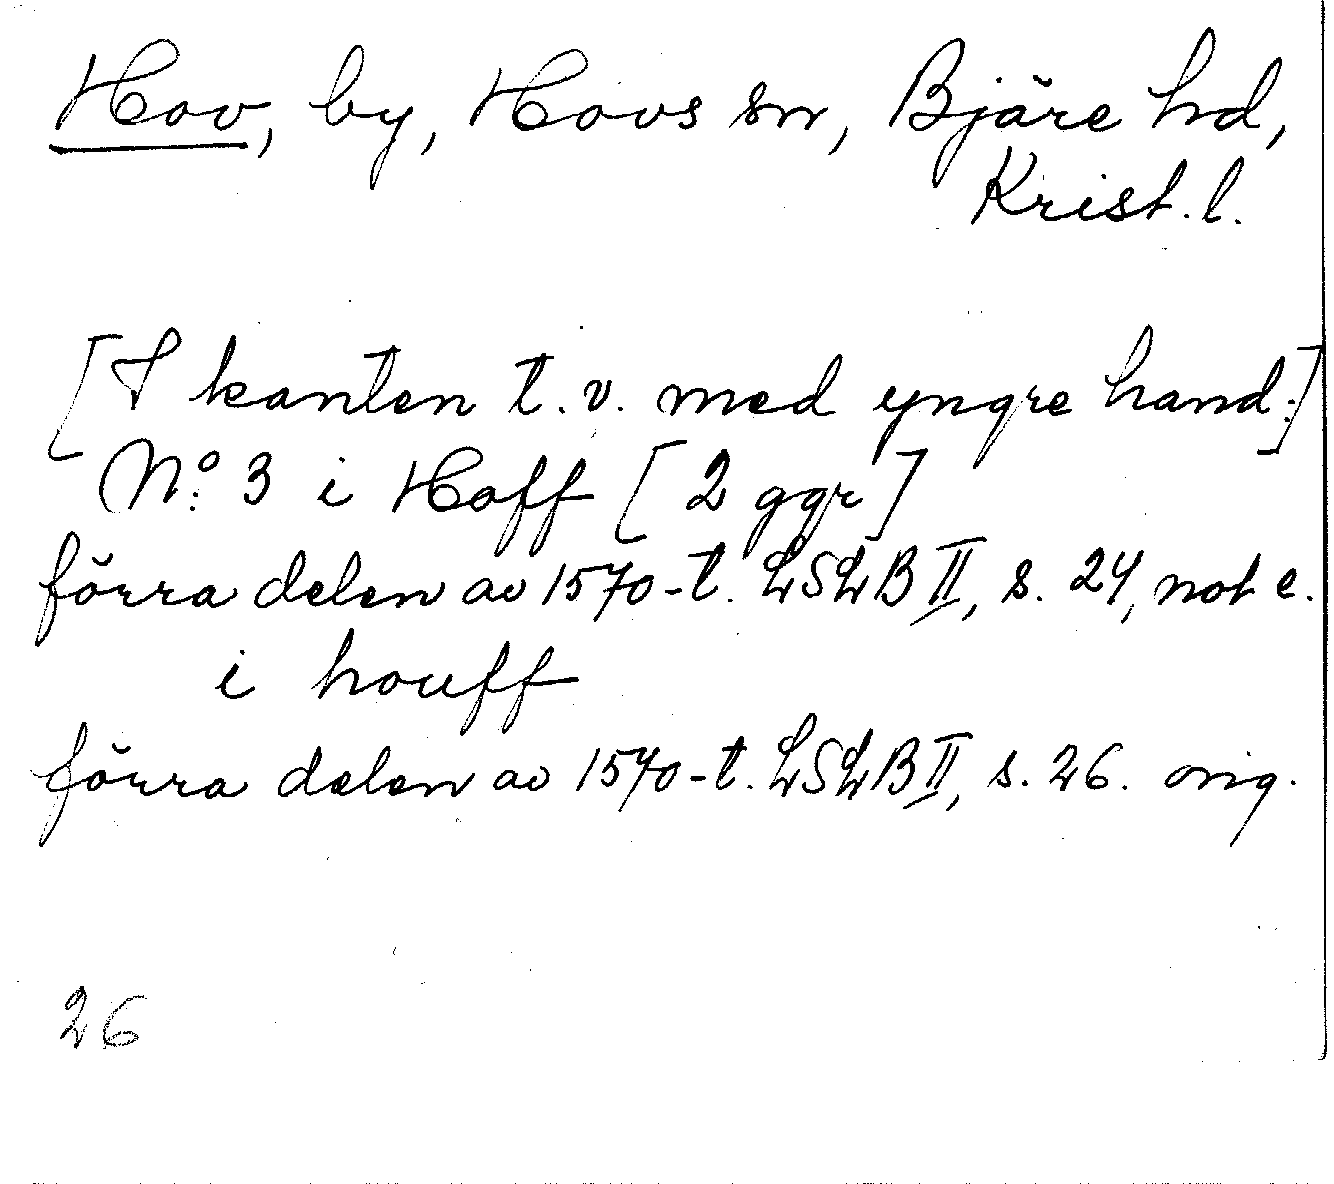 Hov, by, Hovs sn, Bjäre hd,
Krist. l.
[I kanten t. v. med yngre hand:]
No: 3 i Hoff [2 ggr]
förra delen av 1570-t. LSLB II, s. 24, not e.
i houff
förra delen av 1570-t. LSLB II, s. 26. orig.
26